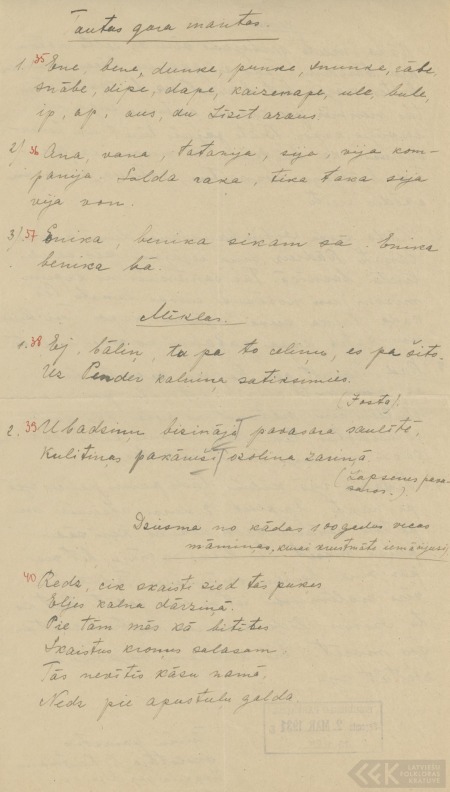 Tautas gara mantas.
1. 35 Ene, bene, dunke, punke, snunke, rābe
snābe, dipe, dape, kaizenape, ule, bule,
ip, ap, aus, du Lisit araus.
2) 36 Ana, vana, tatanya, sija, vija kom-
panija. Solda raka, tika taka sija
vija von.
3) 37 Enika, benika sikam sā. Enika
benika bā.
Mīklas.
1. 38 Ej, bāliņ, tu pa to celiņu, es pa šito.
Uz Pender kalniņa satiksimies.
(Josta).
2. 39 Ubadziņu bizināja pavasara saulītē,
Kulītiņas pakārusi ozoliņa zariņā.
(Lapsenes pava-
saros.)
Dziesma no kādas 100 gadus vecas
māmiņas, kurai krustmāte iemācījusi.
40 Redz, cik skaisti zied tās pukes
Eljes kalna dārziņā.
Pie tām mēs kā bitītes
Skaistus kroņus salasam
Tās nevītīs kāzu namā.
Nedz pie apustuļu galda
2. MAR. 1931
LATVIEŠU
FOLKLORAS
KRĀTUVE